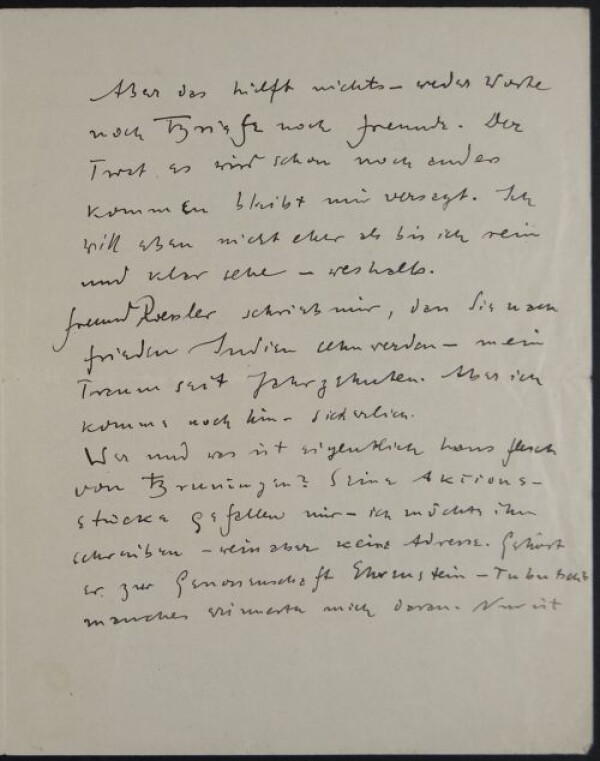 Aber das hilft nichts – weder Worte
noch Briefe noch Freunde. Der
Trost es wird schon noch anders
kommen bleibt mir versagt. Ich
will eben nicht eher als bis ich rein
und klar sehe – weshalb.
Freund Roessler schrieb mir, dass Sie nach
Frieden Indien sehn werden – mein
Traum seit Jahrzehnten. Aber ich
komme noch hin – sicherlich.
Wer und was ist eigentlich Hans Flesch
von Bruningen? Seine Aktions-
stücke gefallen mir – ich möchte ihm
schreiben – weiss aber keine Adresse. Gehört
er zur Genossenschaft Ehrenstein – Tubutsch
manches erinnerte mich daran. Nur ist